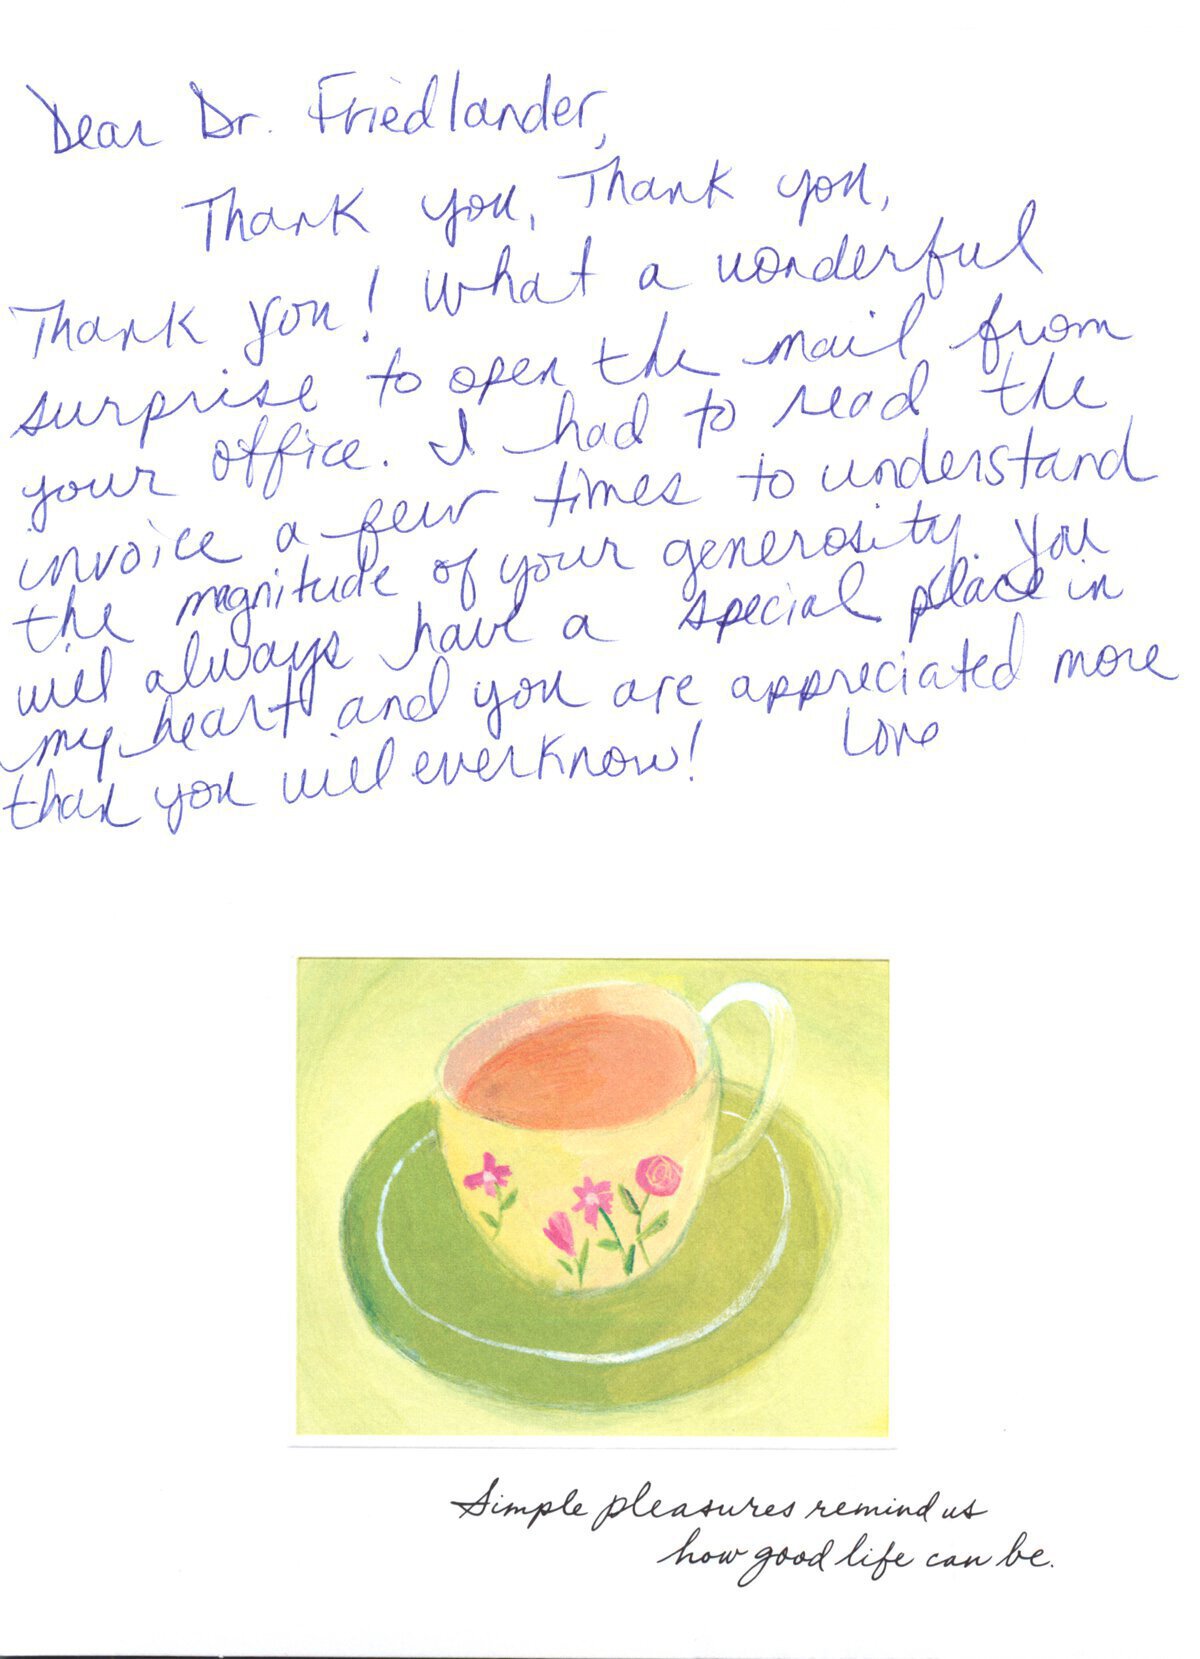 Dear Dr. Friedlander,
Thank you, Thank you,
Thank you! What a wonderful
surprise to open the mail from
your office. I had to read the
invoice a few times to understand
the magnitude of your generosity. You
will always have a special place in
my heart and you are appreciated more
than you will ever know! Love
Simple pleasures remind us
how good life can be.